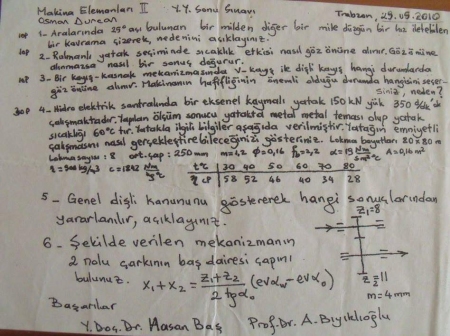 Makina Elemanları II Y.Y. Sonu Sınavı Trabzon, 29.05.2010
Osman Duncan
10P 1 - Aralarında 25° açı bulunan bir milden diğer bir mile düzgün bir hız iletebilen
bir kavrama çizerek, nedenini açıklayınız.
10P 2 - Rulmanlı yatak seçiminde sıcaklık etkisi nasıl göz önüne alınır. Göz önüne
alınmazsa nasıl bir sonuç doğurur.
10P 3 - Bir kayış-kasnak mekanizmasında V-kayış ile dişli kayış hangi durumlarda
göz önüne alınır. Makinanın hafifliğinin önemli olduğu durumda hangisini seçer-
siniz, neden?
30P 4 - Hidro elektrik santralında bir eksenel kaymalı yatak 150 kN yük 350 d/dk'da
çalışmaktadır. Yapılan ölçüm sonucu yatakta metal metal teması olup yatak
sıcaklığı 60°C tır. Yatakla ilgili bilgiler aşağıda verilmiştir. Yatağın emniyetli
çalışmasını nasıl gerçekleştirebileceğinizi gösteriniz. Lokma boyutları 80x80 m
Lokma sayısı: 8 ort. çap: 250 mm m=1,2 φ=0,16 f=2,2 α=15 Nm/sm²°C A=0,16 m²
c=1842 Nm/kg°C t°C 30 40 50 60 70 80
η cP 58 52 46 40 34 28
5 - Genel dişli kanununu göstererek hangi sonuçlarından
yararlanılır, açıklayınız.
6 - Şekilde verilen mekanizmanın
2 nolu çarkının baş dairesi çapını
bulunuz. x₁+x₂ = z₁+z₂ / 2 tgα₀ (evα_w - evα₀)
z₁=8
z₂=11
m=4mm
Başarılar
Y. Doç. Dr. Hasan Baş Prof. Dr. A. Bıyıklıoğlu